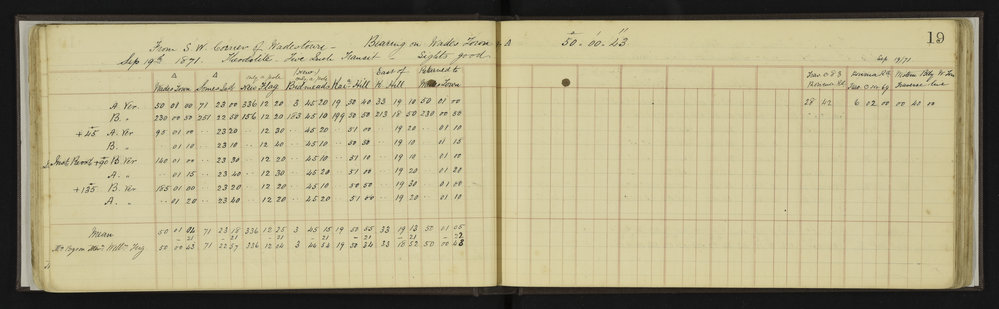 19
From S.W. Corner of Wadestown – Bearing on Wades Town △ 50 – 00 – 43
Sep 19th 1871. Theodolite – Five Inch Transit – Sights good
Sep 19/71
△ △ only a pole (New) only a pole East of Returned to
Wades Town Somes Isld New Flag Botmead's Kai. Hill K. Hill Wades Town
A. Ver 50 01 00 71 23 00 336 12 20 3 45 20 19 50 40 33 19 10 50 01 00 28 42 6 02 00 00 40 00
B. " 230 00 50 251 22 50 156 12 20 183 45 10 199 50 50 213 18 50 230 00 50
+45 A. Ver 95 01 00 .. 23 20 .. 12 30 .. 45 20 .. 51 00 .. 19 20 .. 01 10
B. " .. 01 10 .. 23 10 .. 12 40 .. 45 10 .. 50 50 .. 19 10 .. 01 15
+90 B. Ver 140 01 00 .. 23 30 .. 12 20 .. 45 10 .. 51 10 .. 19 10 .. 01 10
A. " .. 01 15 .. 23 40 .. 12 30 .. 45 20 .. 51 00 .. 19 20 .. 01 20
+135 B. Ver 185 01 00 .. 23 20 .. 12 20 .. 45 10 .. 50 50 .. 19 30 .. 01 00
A. " .. 01 20 .. 23 40 .. 12 20 .. 45 20 .. 51 00 .. 19 20 .. 01 10
Mean 50 01 04 71 23 18 336 12 25 3 45 15 19 50 55 33 19 13 50 01 05
– 21 – 21 – 21 – 21 – 21 – 21 – 22
50 00 43 71 22 57 336 12 04 3 44 54 19 50 34 33 18 52 50 00 43